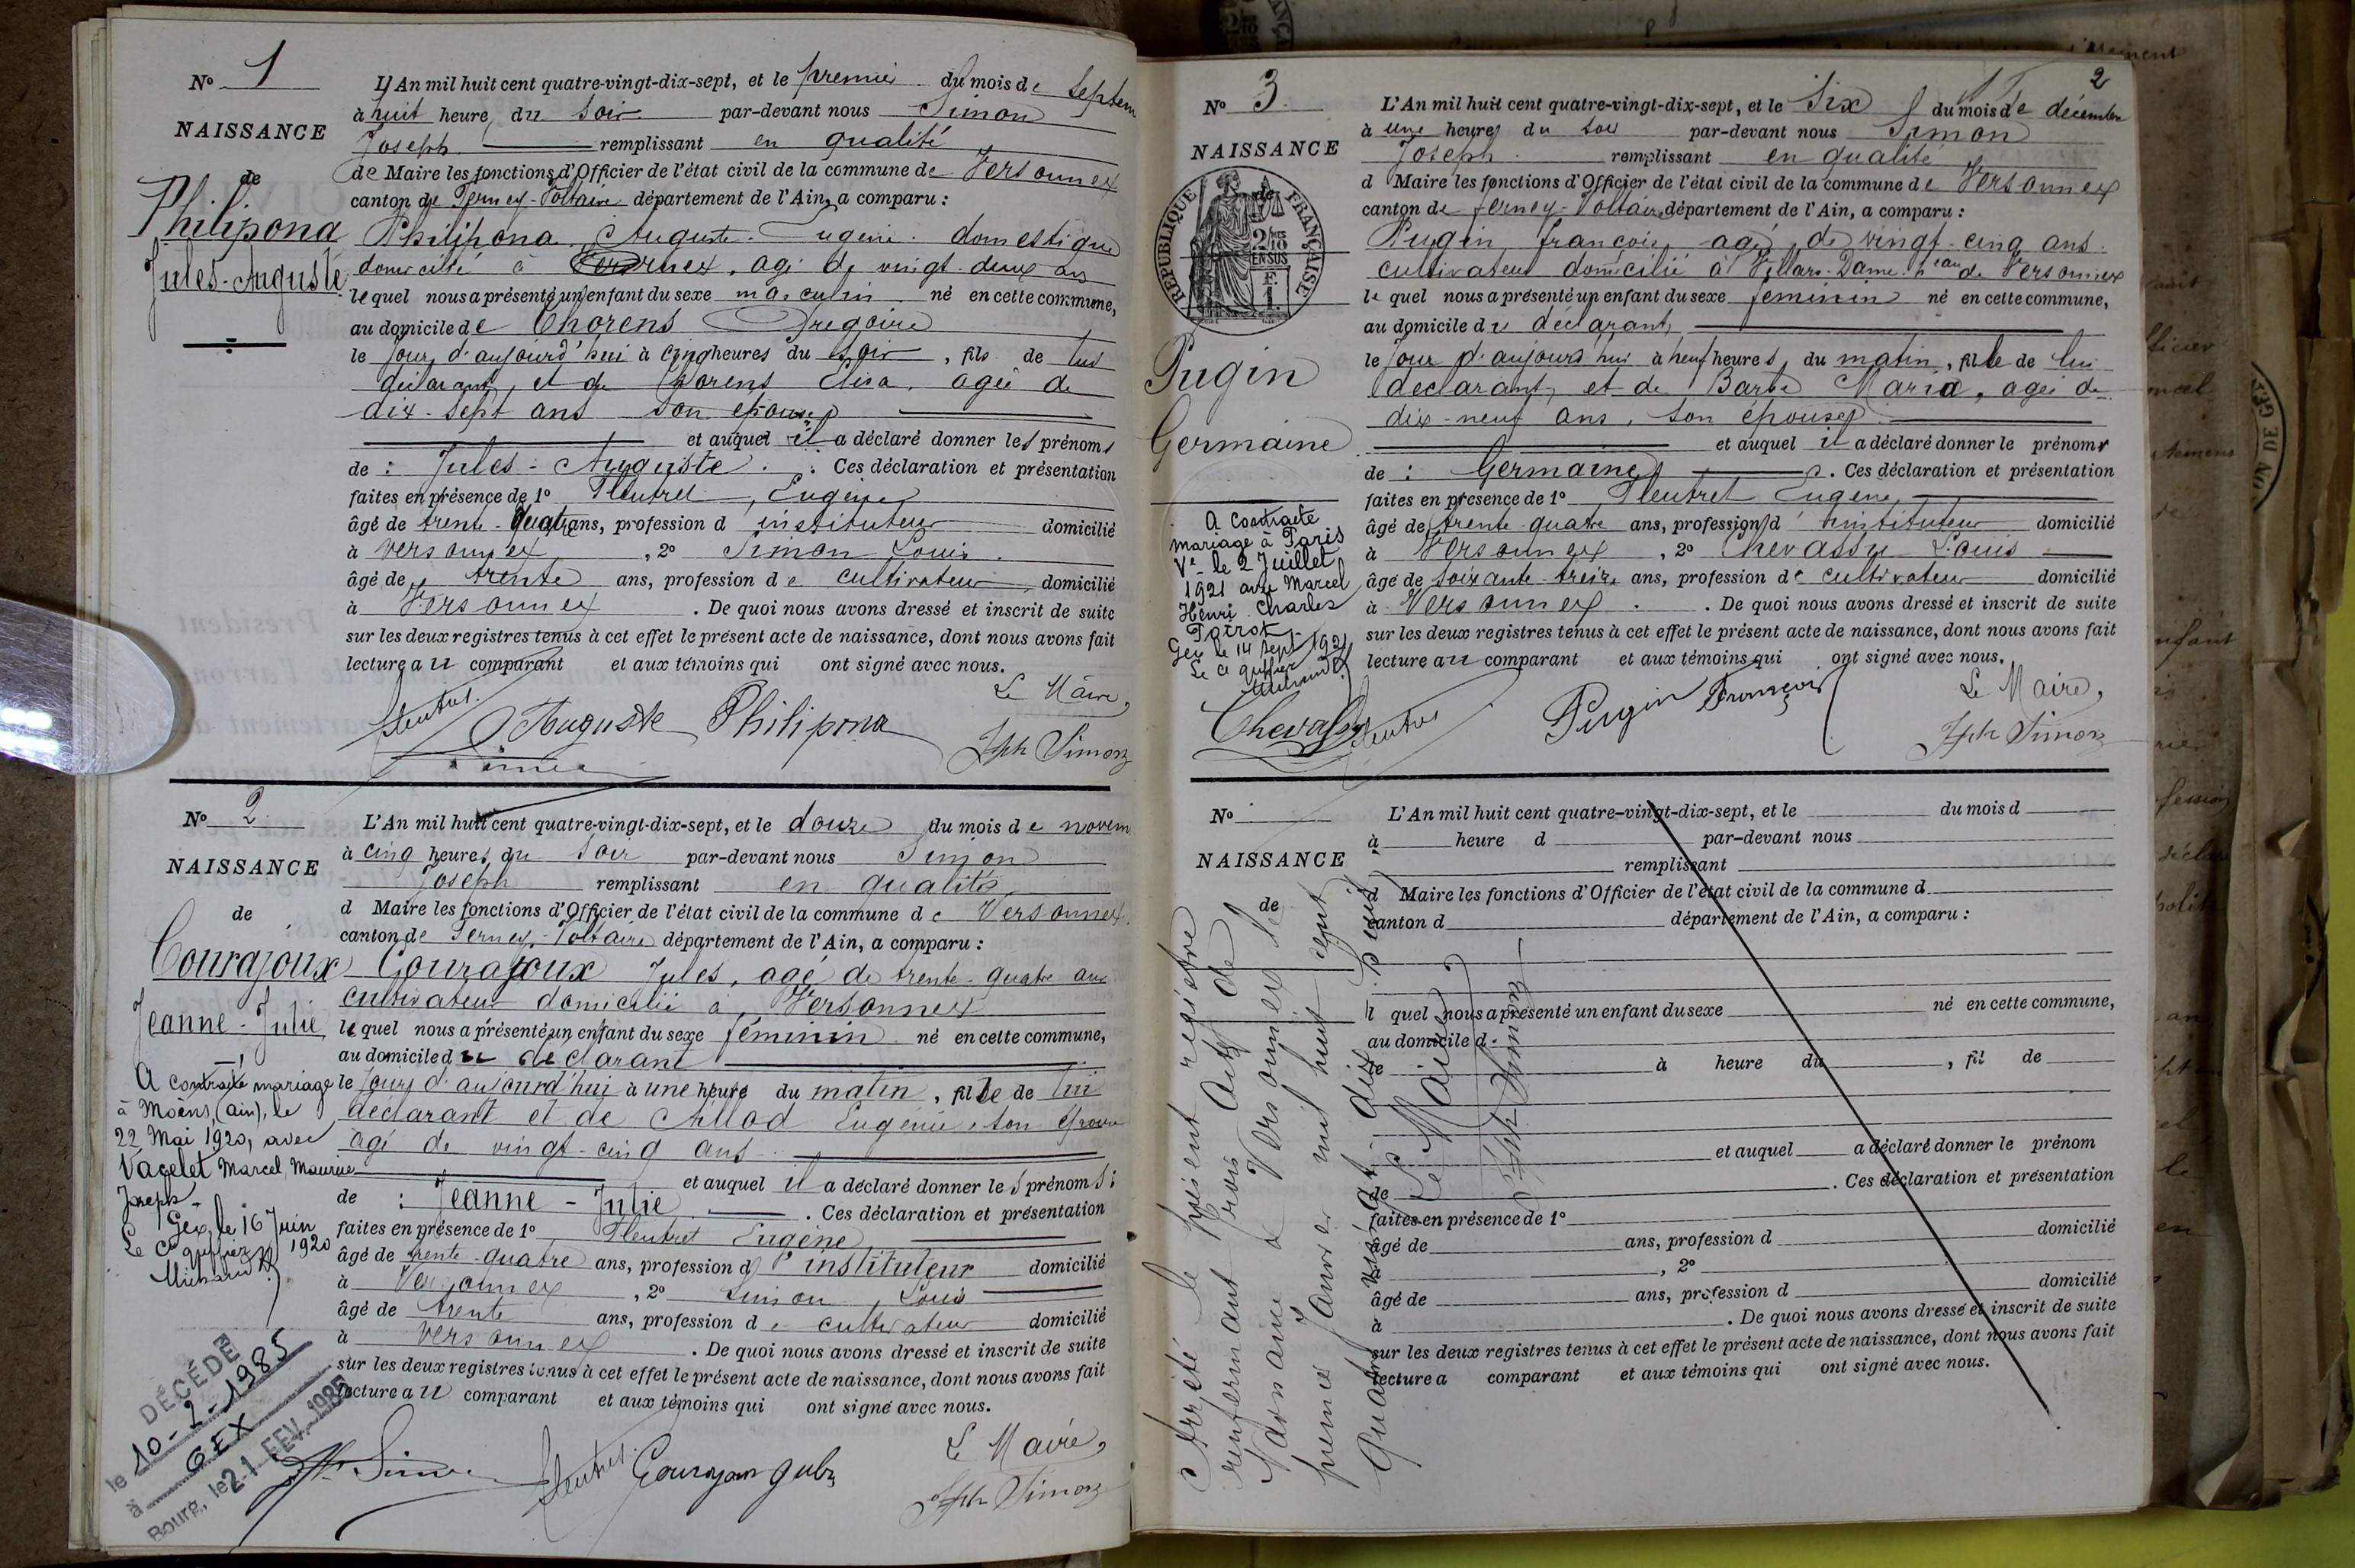 No 1
NAISSANCE
de
Philipona
Jules-Auguste
L'An mil huit cent quatre-vingt-dix-sept, et le premier du mois de Septem
à huit heures du soir par-devant nous Simon
Joseph remplissant en qualité
de Maire les fonctions d'Officier de l'état civil de la commune de Versonnex
canton de Ferney-Voltaire département de l'Ain, a comparu :
Philipona, Auguste Eugène domestique
domicilié à , agé de vingt-deux ans
lequel nous a présenté un enfant du sexe masculin né en cette commune,
au domicile de Chorens Grégoire
le jour d'aujourd'hui à cinq heures du soir, fils de lui
déclarant, et de Chorens Elisa, agée de
dix-sept ans son épouse
et auquel il a déclaré donner les prénoms
de : Jules-Auguste. Ces déclaration et présentation
faites en présence de 1° Pleutret, Eugène
âgé de trente-quatre ans, profession d instituteur domicilié
à Versonnex, 2° Simon Louis
âgé de trente ans, profession de cultivateur, domicilié
à Versonnex. De quoi nous avons dressé et inscrit de suite
sur les deux registres tenus à cet effet le présent acte de naissance, dont nous avons fait
lecture au comparant et aux témoins qui ont signé avec nous.
Auguste Philipona
Le Maire,
Jph Simon
No 2
NAISSANCE
de
Courajoux
Jeanne-Julie
A contracté mariage
à Moëns, (ain), le
22 Mai 1920, avec
Vacelet Marcel Maurice
Joseph
Gex, le 16 Juin
1920
Le Cis greffier
Michaud
DÉCÉDÉ
le 10-2-1985
à GEX
Bourg, le 21 FEV. 1985
L'An mil huit cent quatre-vingt-dix-sept, et le douze du mois de novem
à cinq heures du soir par-devant nous Simon
Joseph remplissant en qualité
d Maire les fonctions d'Officier de l'état civil de la commune de Versonnex
canton de Ferney-Voltaire département de l'Ain, a comparu :
Courajoux Jules, agé de trente-quatre ans
cultivateur domicilié à Versonnex
lequel nous a présenté un enfant du sexe féminin né en cette commune,
au domicile du déclarant
le jour d'aujourd'hui à une heure du matin, fille de lui
déclarant et de Eugénie, son épouse
agé de vingt-cinq ans
et auquel il a déclaré donner les prénoms
de : Jeanne-Julie. Ces déclaration et présentation
faites en présence de 1° Pleutret Eugène
âgé de trente-quatre ans, profession d'instituteur domicilié
à Versonnex, 2° Simon Louis
âgé de trente ans, profession de cultivateur domicilié
à Versonnex. De quoi nous avons dressé et inscrit de suite
sur les deux registres tenus à cet effet le présent acte de naissance, dont nous avons fait
lecture au comparant et aux témoins qui ont signé avec nous.
Simon
Courajoux Jules
Le Maire,
Jph Simon
2
No 3
NAISSANCE
de
RÉPUBLIQUE FRANÇAISE
2/10 EN SUS
Pugin
Germaine
A contracté
mariage à Paris
Ve le 2 Juillet
1921 avec Marcel
Henri Charles
Poirot
Gex le 14 Sept 1921
Le Cis greffier
Michaud
L'An mil huit cent quatre-vingt-dix-sept, et le Six du mois de décembre
à une heure du soir par-devant nous Simon
Joseph remplissant en qualité
d Maire les fonctions d'Officier de l'état civil de la commune de Versonnex
canton de Ferney-Voltaire département de l'Ain, a comparu :
Pugin, françois, agé de vingt-cinq ans
cultivateur domicilié à Villars-Dame, heau de Versonnex
lequel nous a présenté un enfant du sexe féminin né en cette commune,
au domicile du déclarant,
le jour d'aujourd'hui à neuf heures du matin, fille de lui
déclarant, et de Barbe Maria, agée de
dix-neuf ans, son épouse
et auquel il a déclaré donner le prénom
de : Germaine. Ces déclaration et présentation
faites en présence de 1° Pleutret Eugène
âgé de trente-quatre ans, profession d'instituteur domicilié
à Versonnex, 2° Chevassu Louis
âgé de soixante-treize ans, profession de cultivateur domicilié
à Versonnex. De quoi nous avons dressé et inscrit de suite
sur les deux registres tenus à cet effet le présent acte de naissance, dont nous avons fait
lecture au comparant et aux témoins qui ont signé avec nous.
Chevassu
Pugin François
Le Maire,
Jph Simon
No
NAISSANCE
de
L'An mil huit cent quatre-vingt-dix-sept, et le du mois d
à heure d par-devant nous
remplissant
d Maire les fonctions d'Officier de l'état civil de la commune d
canton d département de l'Ain, a comparu :
l quel nous a présenté un enfant du sexe né en cette commune,
au domicile d
le à heure du , fil de
et auquel a déclaré donner le prénom
de . Ces déclaration et présentation
faites en présence de 1°
âgé de ans, profession d domicilié
à , 2°
âgé de ans, profession d domicilié
à . De quoi nous avons dressé et inscrit de suite
sur les deux registres tenus à cet effet le présent acte de naissance, dont nous avons fait
lecture a comparant et aux témoins qui ont signé avec nous.
Arrêté le présent registre
renfermant trois actes de
Naissance à Versonnex le
premier Janvier mil huit cent
quatre-vingt-dix-huit
Le Maire,
Jph Simon